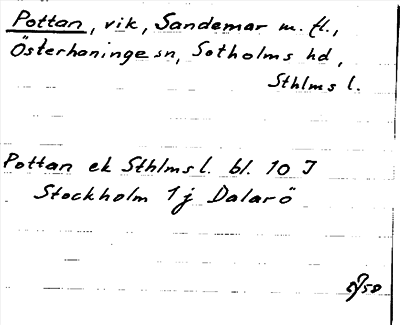 Pottan, vik, Sandemar m. fl.,
Österhaninge sn, Sotholms hd,
Sthlms l.
Pottan ek Sthlms l. bl. 10 J
Stockholm 1j Dalarö
58